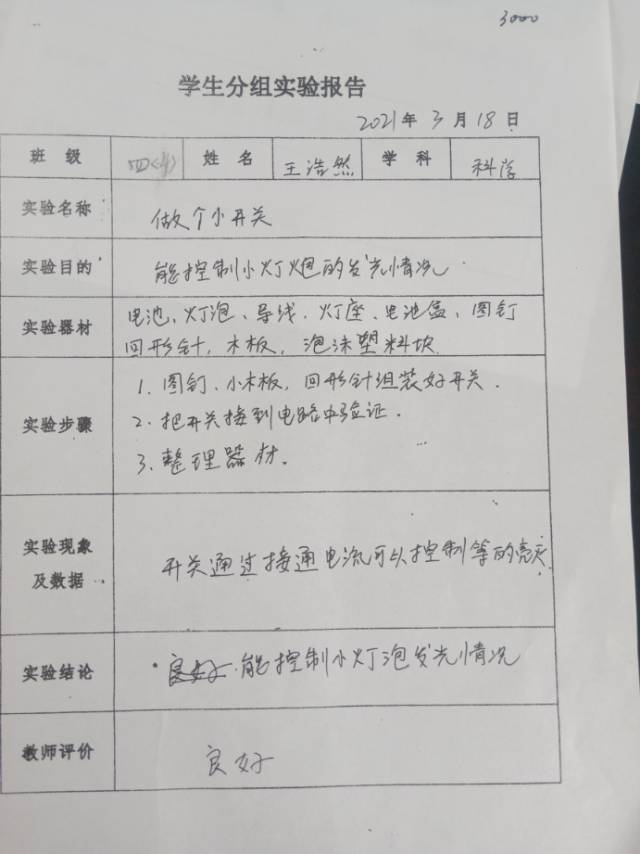 3000
学生分组实验报告
2021年3月18日
班 级 四(4) 姓 名 王浩然 学 科 科学
实验名称 做个小开关
实验目的 能控制小灯炮的发光情况
实验器材 电池、灯泡、导线、灯座、电池盒、图钉
回形针，木板，泡沫塑料块
实验步骤
1. 图钉、小木板，回形针组装好开关.
2. 把开关接到电路中验证.
3. 整理器材.
实验现象及数据 开关通过接通电流可以控制等的亮灭
实验结论 良好.能控制小灯泡发光情况
教师评价 良好